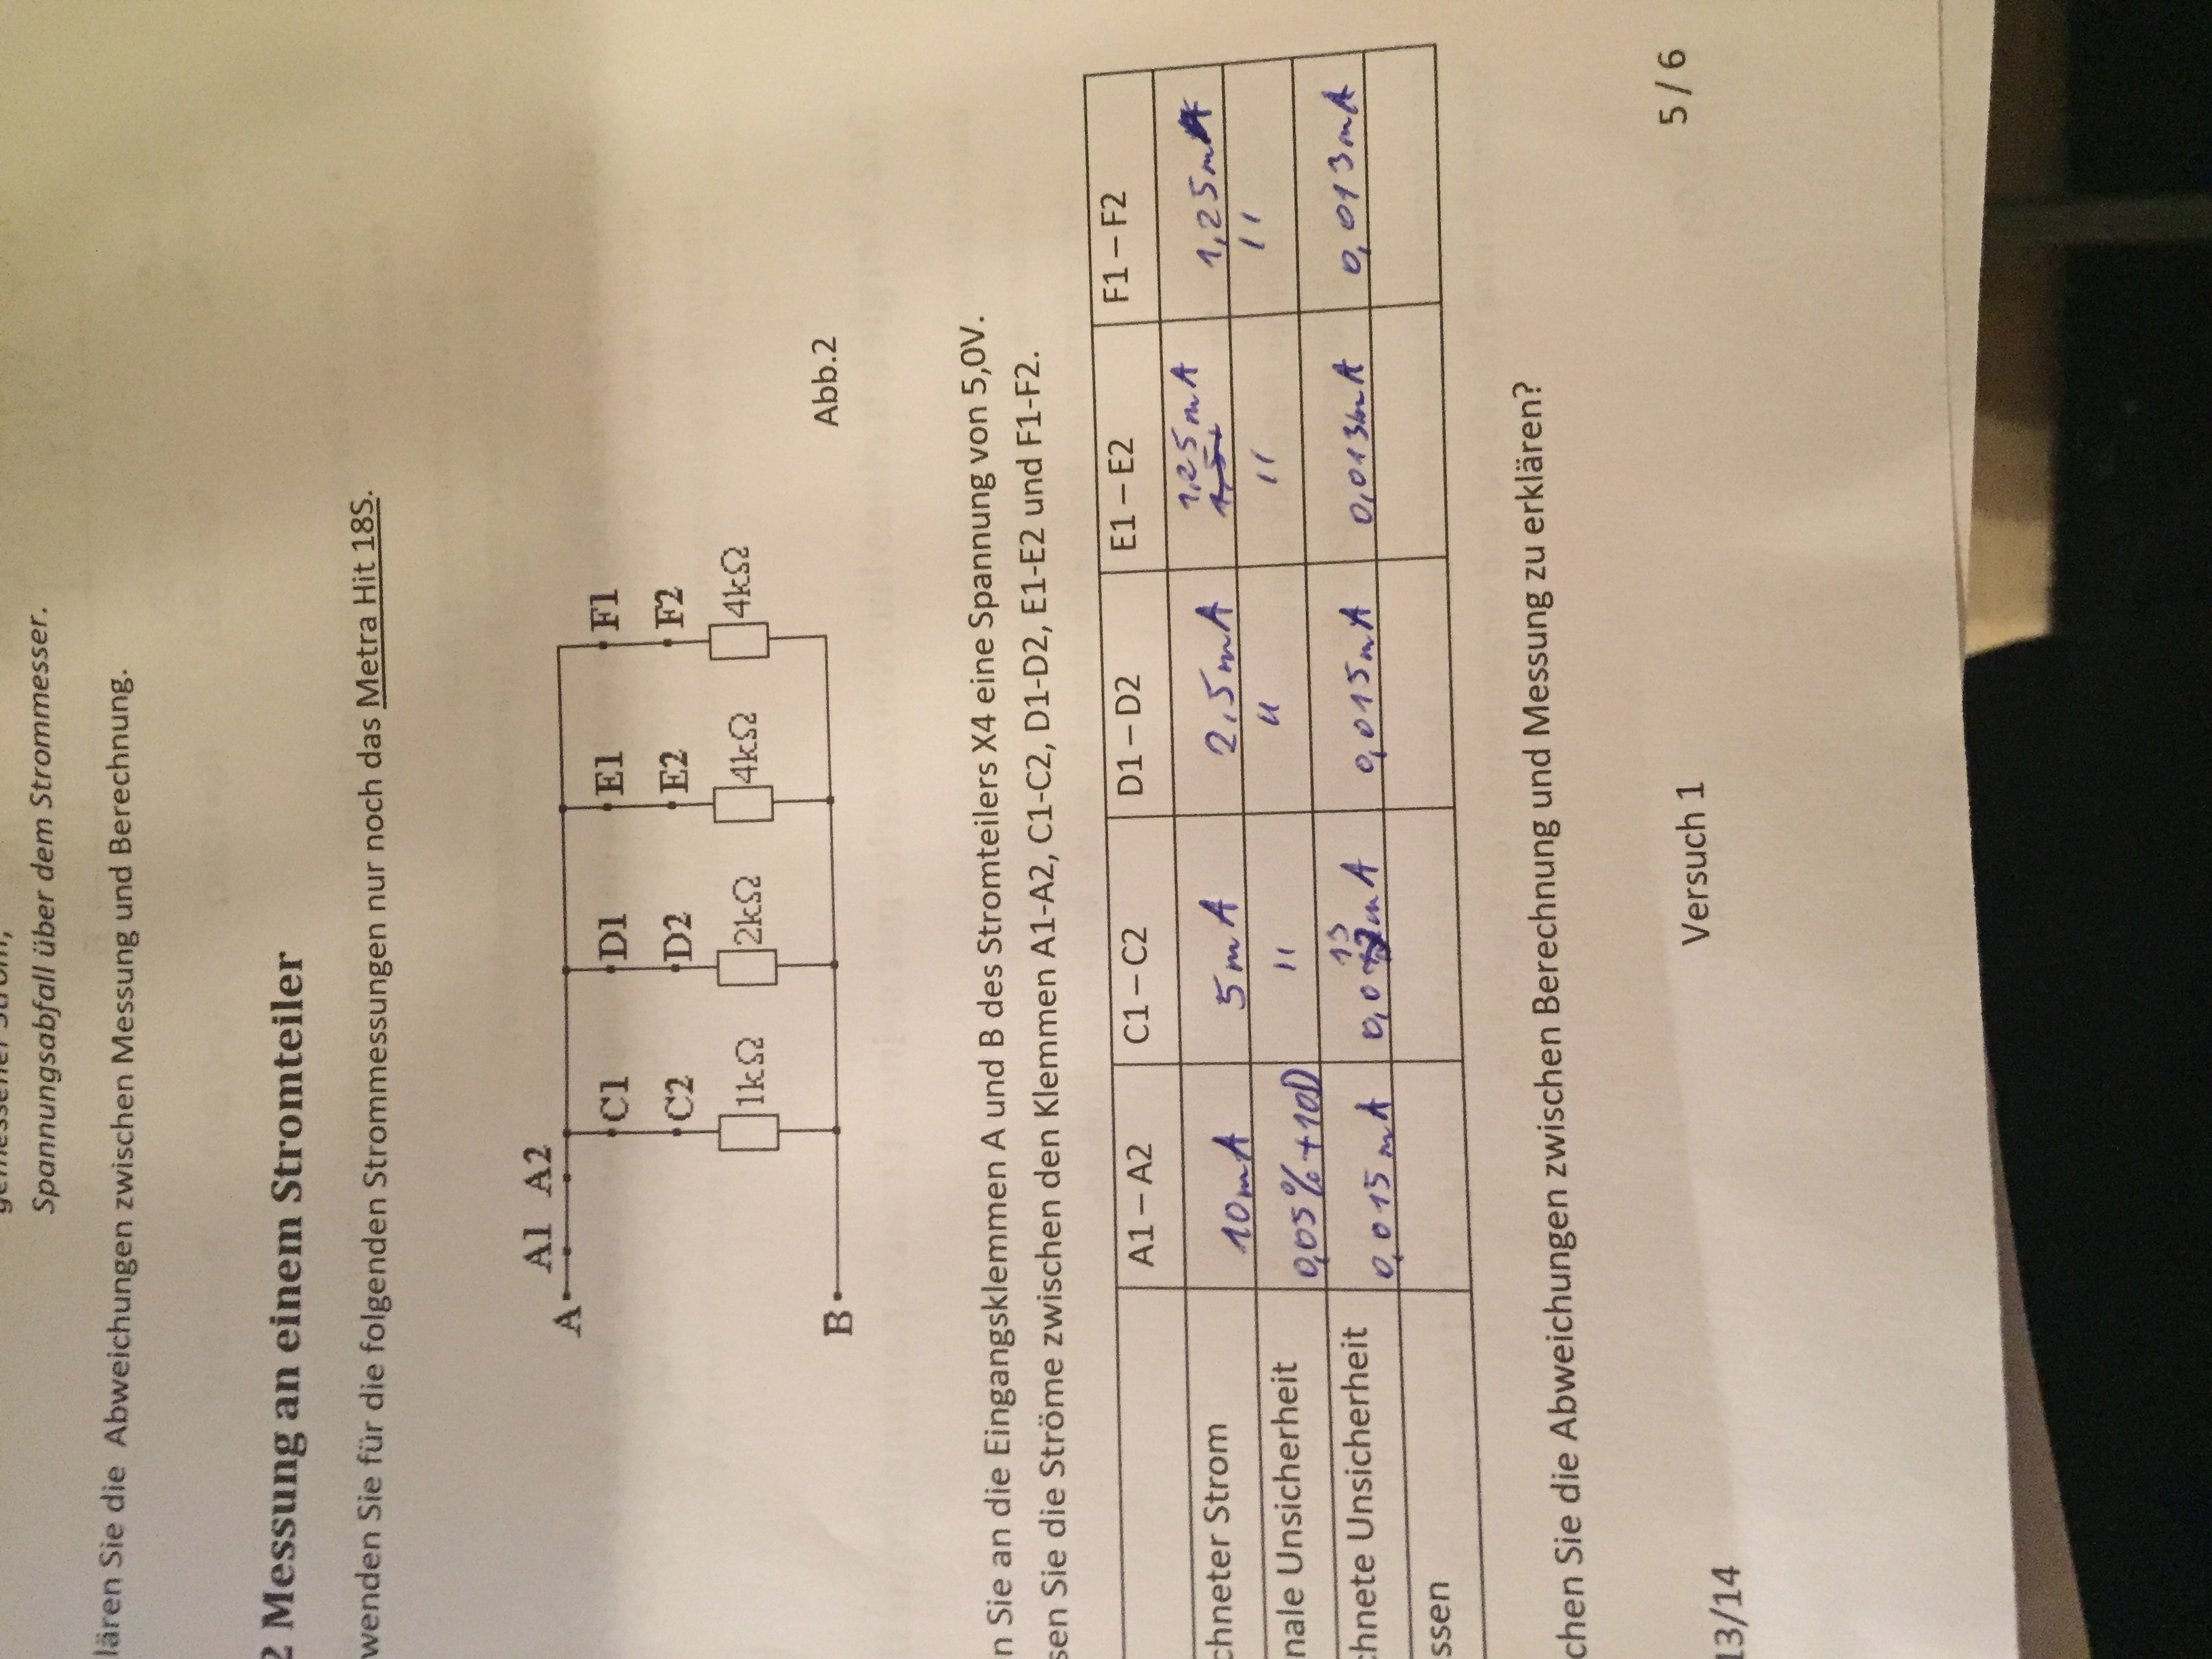 gemessener Strom,
Spannungsabfall über dem Strommesser.
lären Sie die Abweichungen zwischen Messung und Berechnung.
2 Messung an einem Stromteiler
wenden Sie für die folgenden Strommessungen nur noch das Metra Hit 18S.
A1 A2
A
C1 D1 E1 F1
C2 D2 E2 F2
1kΩ 2kΩ 4kΩ 4kΩ
B
Abb.2
n Sie an die Eingangsklemmen A und B des Stromteilers X4 eine Spannung von 5,0V.
sen Sie die Ströme zwischen den Klemmen A1-A2, C1-C2, D1-D2, E1-E2 und F1-F2.
A1 – A2 C1 – C2 D1 – D2 E1 – E2 F1 – F2
chneter Strom 10mA 5mA 2,5mA 1,25mA 1,5 1,25mA
nale Unsicherheit 0,05%+10D " " " "
chnete Unsicherheit 0,015mA 0,013mA 0,015mA 0,013mA 0,013mA
ssen
chen Sie die Abweichungen zwischen Berechnung und Messung zu erklären?
13/14
Versuch 1
5 / 6